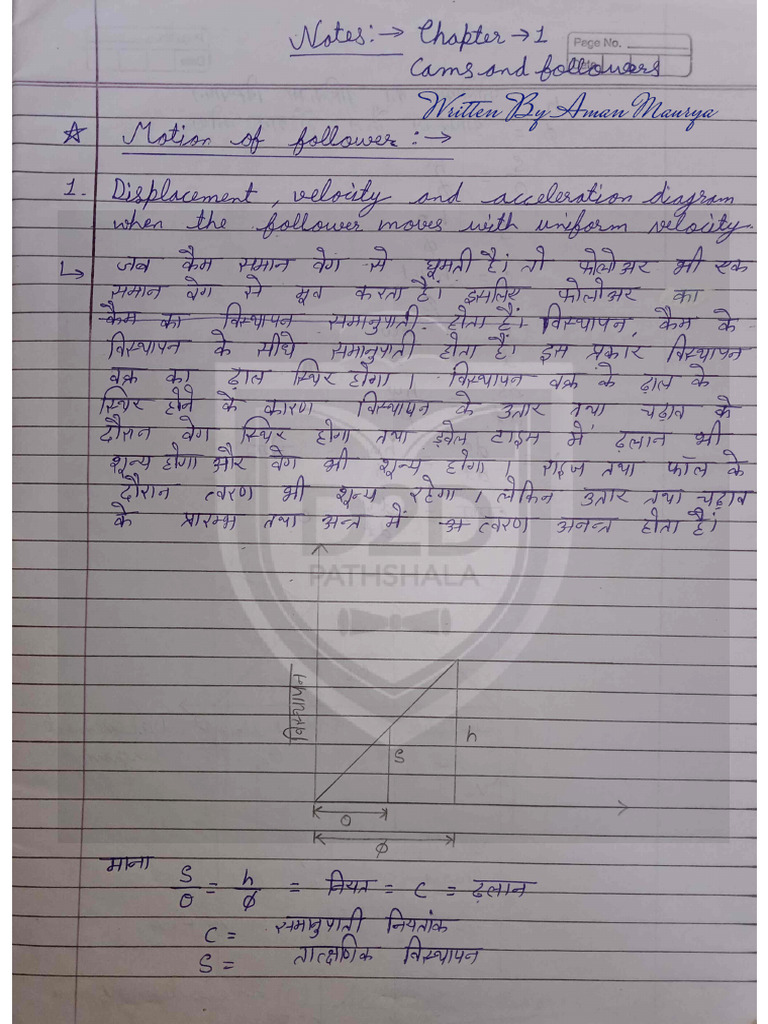 Notes:→ Chapter → 1
Page No.
Cams and followers
Written By Aman Maurya
☆ Motion of follower :→
1. Displacement, velocity and acceleration diagram
when the follower moves with uniform velocity.
↳ जब कैम समान वेग से घूमती है। तो फोलोअर भी एक
समान वेग से मूव करता है। इसलिए फोलोअर का
कैम का विस्थापन समानुपाती होता है। विस्थापन, कैम के
विस्थापन के सीधे समानुपाती होता है। इस प्रकार विस्थापन
वक्र का ढ़ाल स्थिर होगा। विस्थापन वक्र के ढ़ाल के
स्थिर होने के कारण विस्थापन के उतार तथा चढ़ाव के
दौरान वेग स्थिर होगा तथा ड्वेल टाइम में ढ़लान भी
शून्य होगा और वेग भी शून्य होगा। राइज तथा फॉल के
दौरान त्वरण भी शून्य रहेगा। लेकिन उतार तथा चढ़ाव
के प्रारम्भ तथा अन्त में अ त्वरण अनन्त होता है।
D2D
PATHSHALA
विस्थापन
h
S
θ
φ
माना
S/θ = h/φ = नियत = C = ढ़लान
C = समानुपाती नियतांक
S = तात्क्षणिक विस्थापन